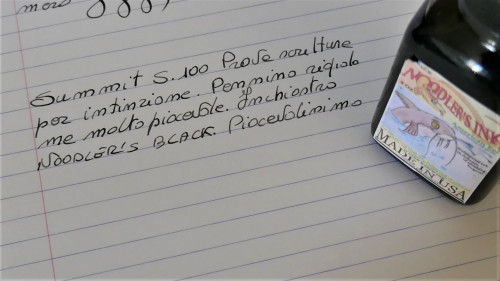 more
Summit S.100 Prove scritture
per intinzione. Pennino rigido
me molto piacevole. Inchiostro
NOODLER'S BLACK. Piacevolissimo
NOODLER'S INK
MADE IN USA